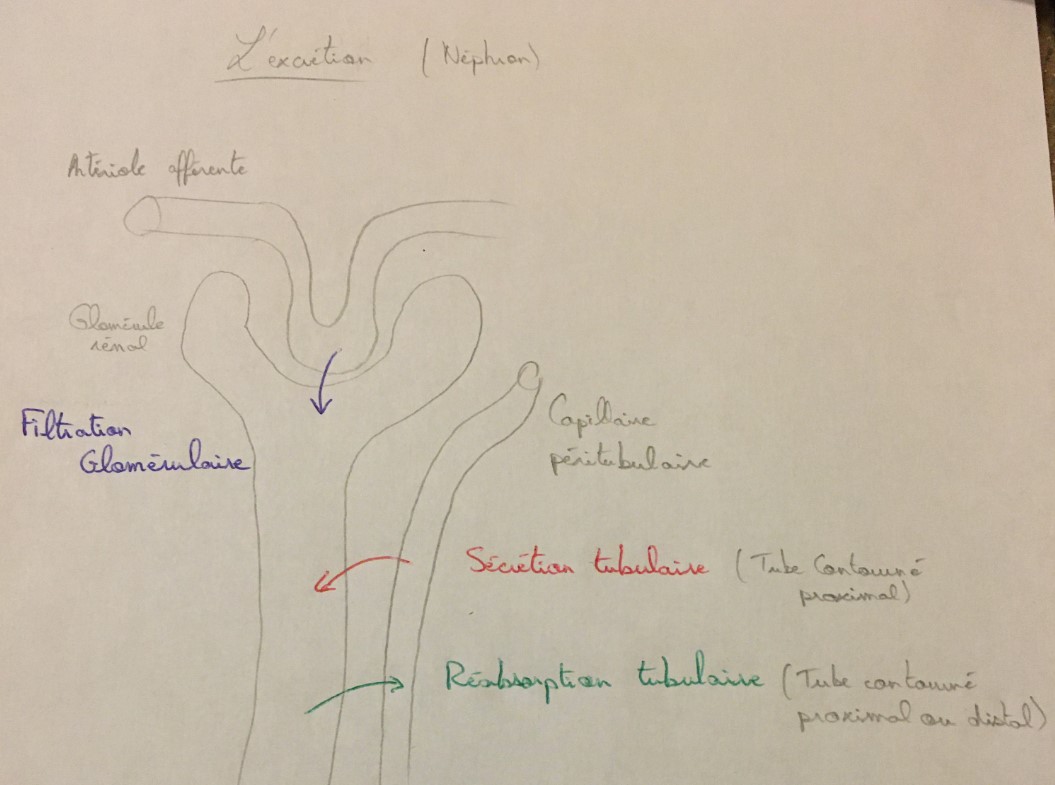 L'excrétion (Néphron)
Artériole afférente
Glomérule
rénal
Filtration
Glomérulaire
Capillaire
péritubulaire
Sécrétion tubulaire (Tube Contourné
proximal)
Réabsorption tubulaire (Tube contourné
proximal ou distal)